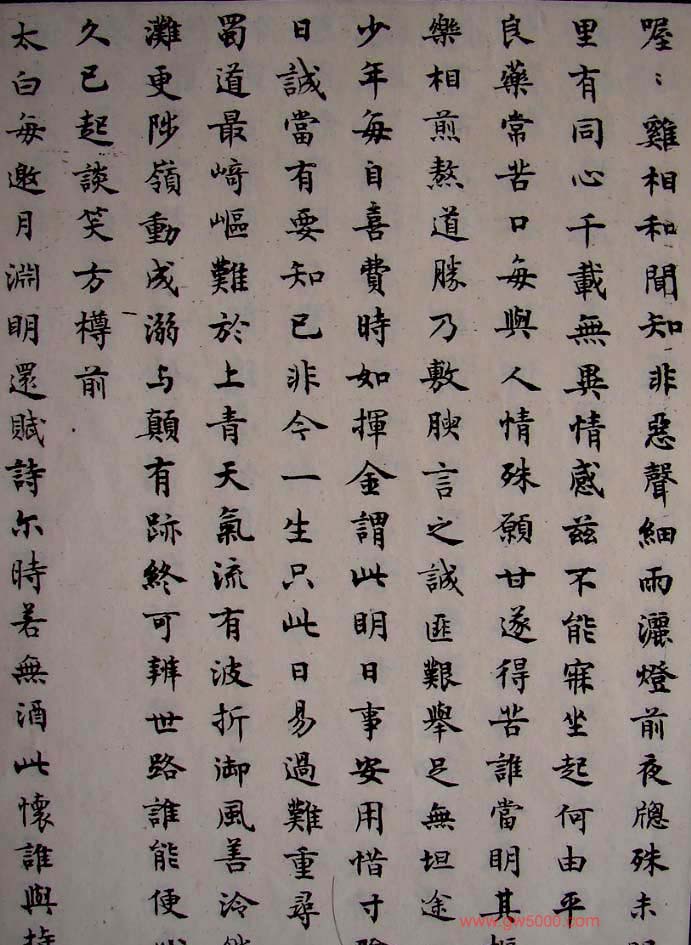 喔〻雞相和聞知非惡聲細雨灑燈前夜牕殊未
里有同心千載無異情感茲不能寐坐起何由平
良藥常苦口每與人情殊願甘遂得苦誰當明其
樂相煎熬道勝乃敷腴言之誠匪艱舉足無坦途
少年每自喜費時如揮金謂此明日事安用惜寸
日誠當有要知已非今一生只此日易過難重尋
蜀道最﨑嶇難於上青天氣流有波折御風善泠
灘更陟嶺動成溺与顛有跡終可辨世路誰能便
久已起談笑方樽前
太白每邀月淵明還賦詩尓時若無酒此懷誰與持
www.gw5000.com